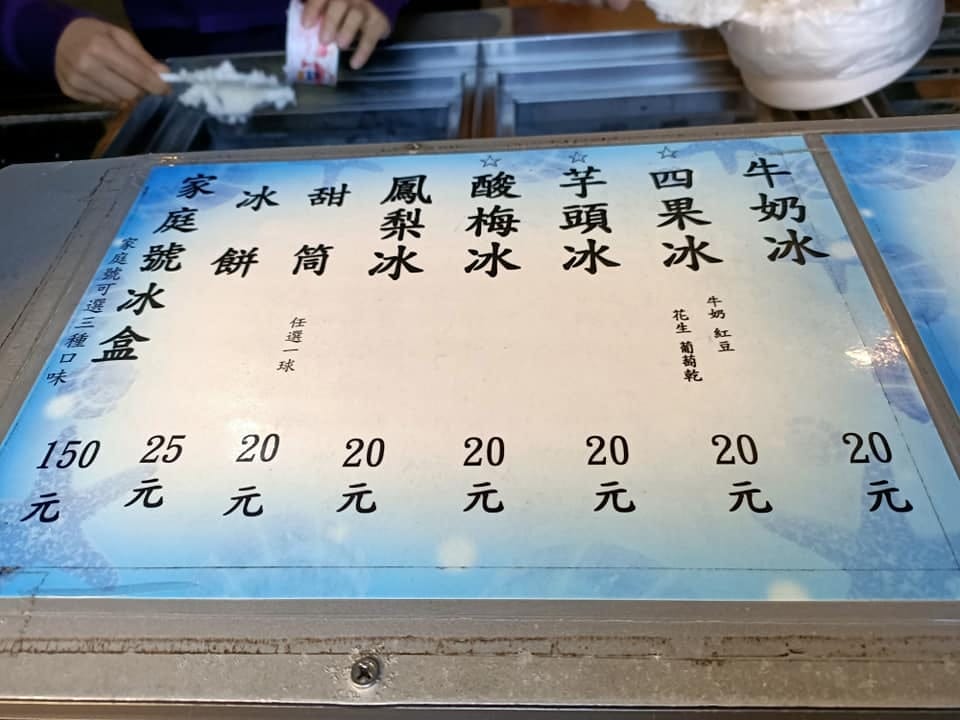 牛奶冰
20元
☆四果冰
牛奶 紅豆
花生 葡萄乾
20元
☆芋頭冰
20元
☆酸梅冰
20元
鳳梨冰
20元
甜筒
任選一球
20元
冰餅
25元
家庭號冰盒
家庭號可選三種口味
150元